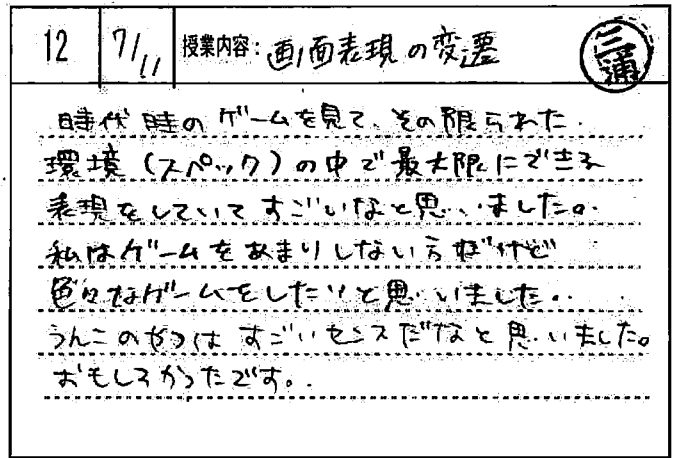 12 7/11 授業内容: 画面表現の変遷 三浦
時代時のゲームを見て、その限られた
環境(スペック)の中で最大限にできる
表現をしていてすごいなと思いました。
私はゲームをあまりしない方だけど
色々なゲームをしたいと思いました。
うんこのやつはすごいセンスだなと思いました。
おもしろかったです。